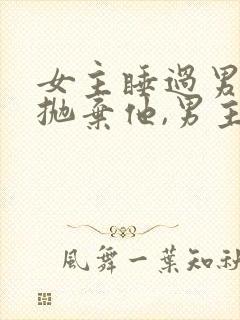 女主睡過男
拋棄他,男主
風舞一葉知秋